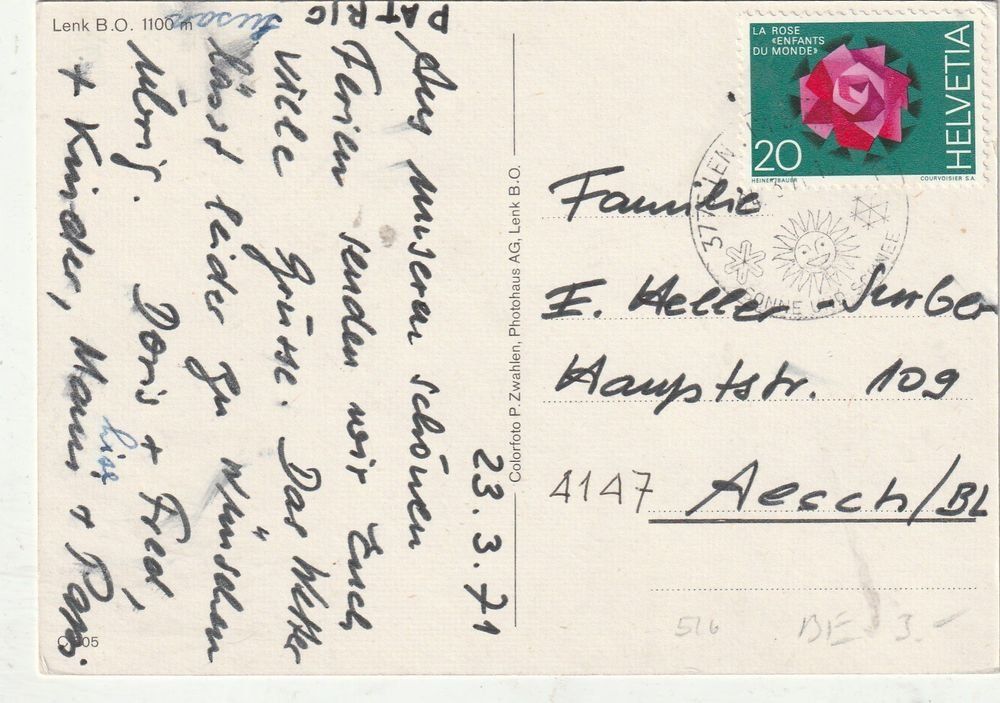 Lenk B.O. 1100 m
23.3.71
Aus unseren schönen
Ferien senden wir Euch
viele Grüsse. Das Wetter
lässt leider zu wünschen
übrig. Doris + Fred,
+ Kinder, Mams + Paps.
Lisa
Susan
PATRIC
C 105
Colorfoto P. Zwahlen, Photohaus AG, Lenk B.O.
LA ROSE
«ENFANTS
DU MONDE»
20
HELVETIA
HEINER BAUER
COURVOISIER S.A.
377 LEN
SONNE UND SCHNEE
Familie
E. Heller-Surber
Hauptstr. 109
4147 Aesch/BL
516 BE 3-